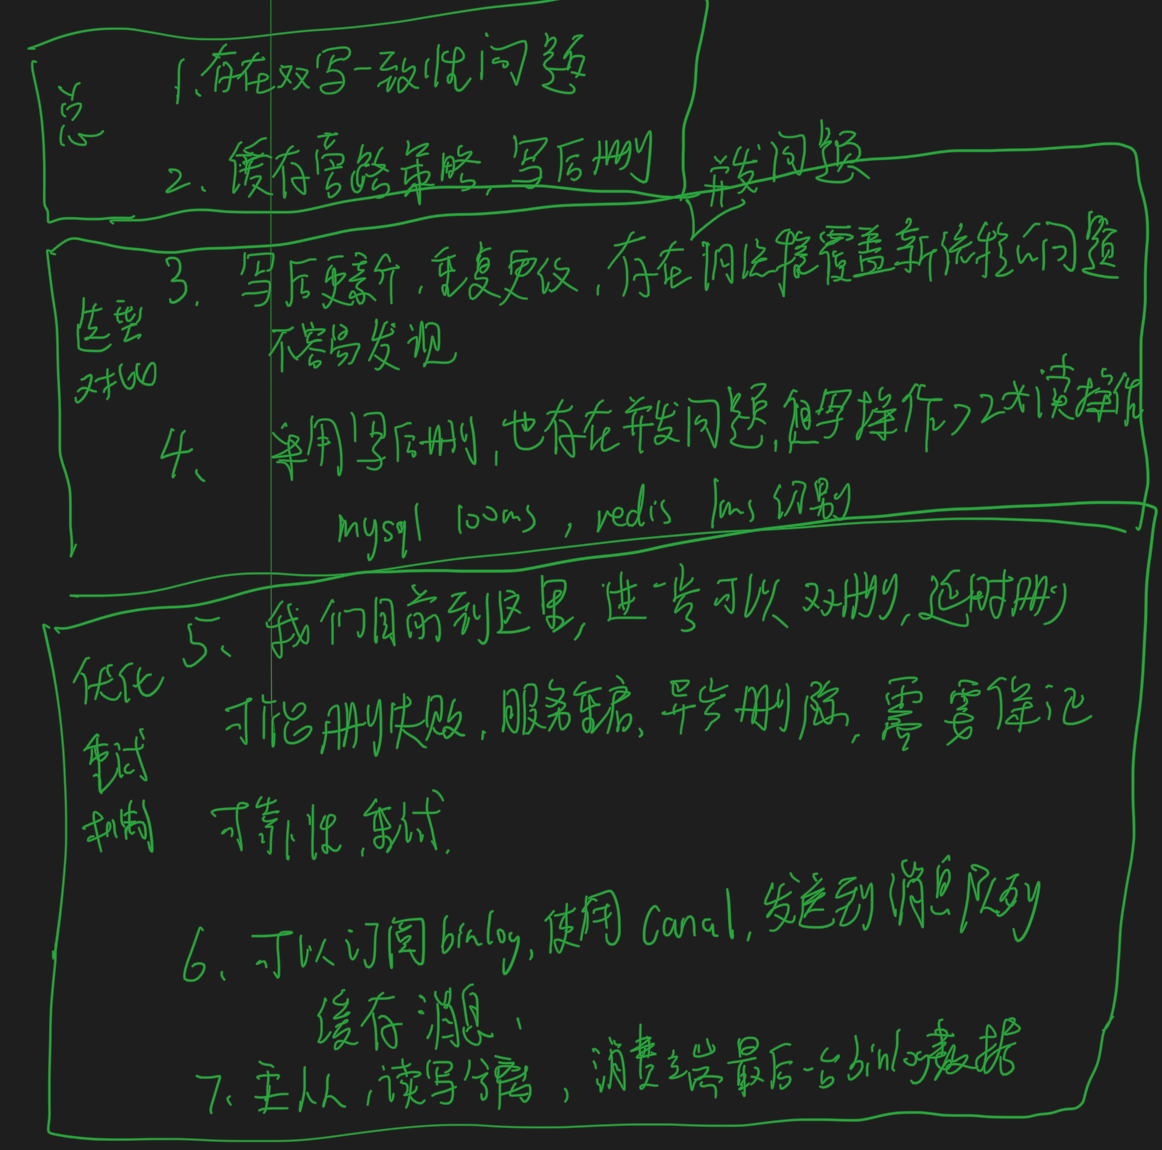 总
1.存在双写一致性问题
2、缓存旁路策略,写后删
并发问题
选型
对比
3. 写后更新,重复更改,存在旧值覆盖新值的问题
不容易发现
4、 采用写后删,也存在并发问题,但写操作>2*读操作
mysql 100ms, redis 1ms 级别
优化
重试
机制
5、我们目前到这里,进一步可以双删,延时删
可能删失败,服务重启,异步删除,需要保证
可靠性,重试.
6、可以订阅binlog,使用Canal,发送到消息队列
缓存消息,
7、主从,读写分离,消费端最后一台binlog数据